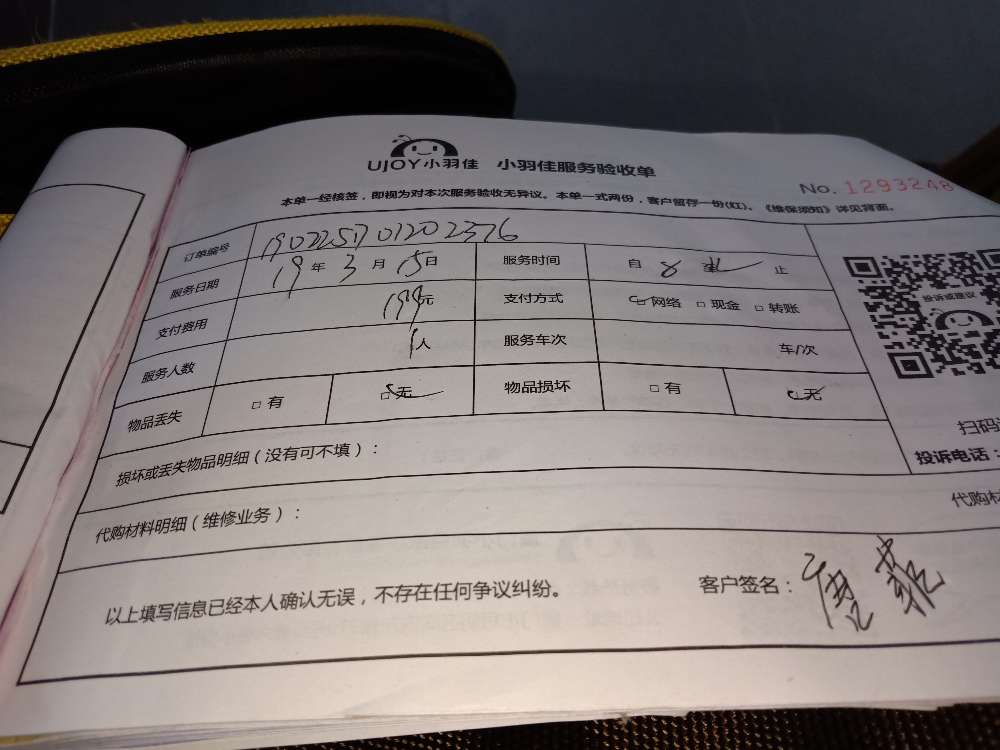 UJOY小羽佳 小羽佳服务验收单
No. 1293248
本单一经核签，即视为对本次服务验收无异议。本单一式两份，客户留存一份(红)。《维保须知》详见背面。
订单编号
服务日期 19年3月15日 服务时间 自 8 止
支付费用 199元 支付方式 □网络 □现金 □转账
服务人数 1人 服务车次 车/次
物品丢失 □有 □无 物品损坏 □有 □无
投诉或建议
扫码
投诉电话：
损坏或丢失物品明细（没有可不填）：
代购材料明细（维修业务）：
代购材
以上填写信息已经本人确认无误，不存在任何争议纠纷。 客户签名：